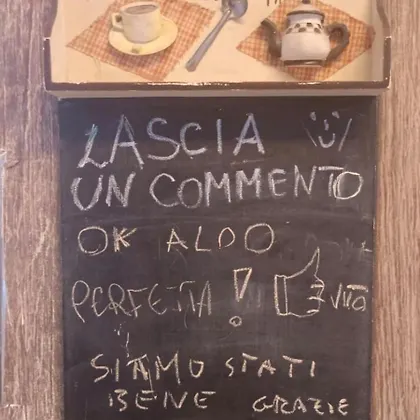 LASCIA
UN COMMENTO
OK ALDO
PERFETTA! VITO
SIAMO STATI
BENE GRAZIE